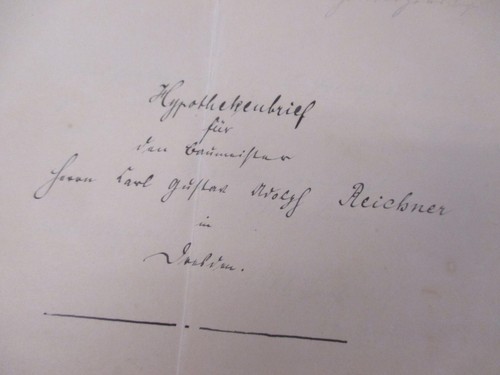 Hypothekenbrief
für
den Baumeister
Herrn Carl Gustav Adolph Reichner
in
Dresden.